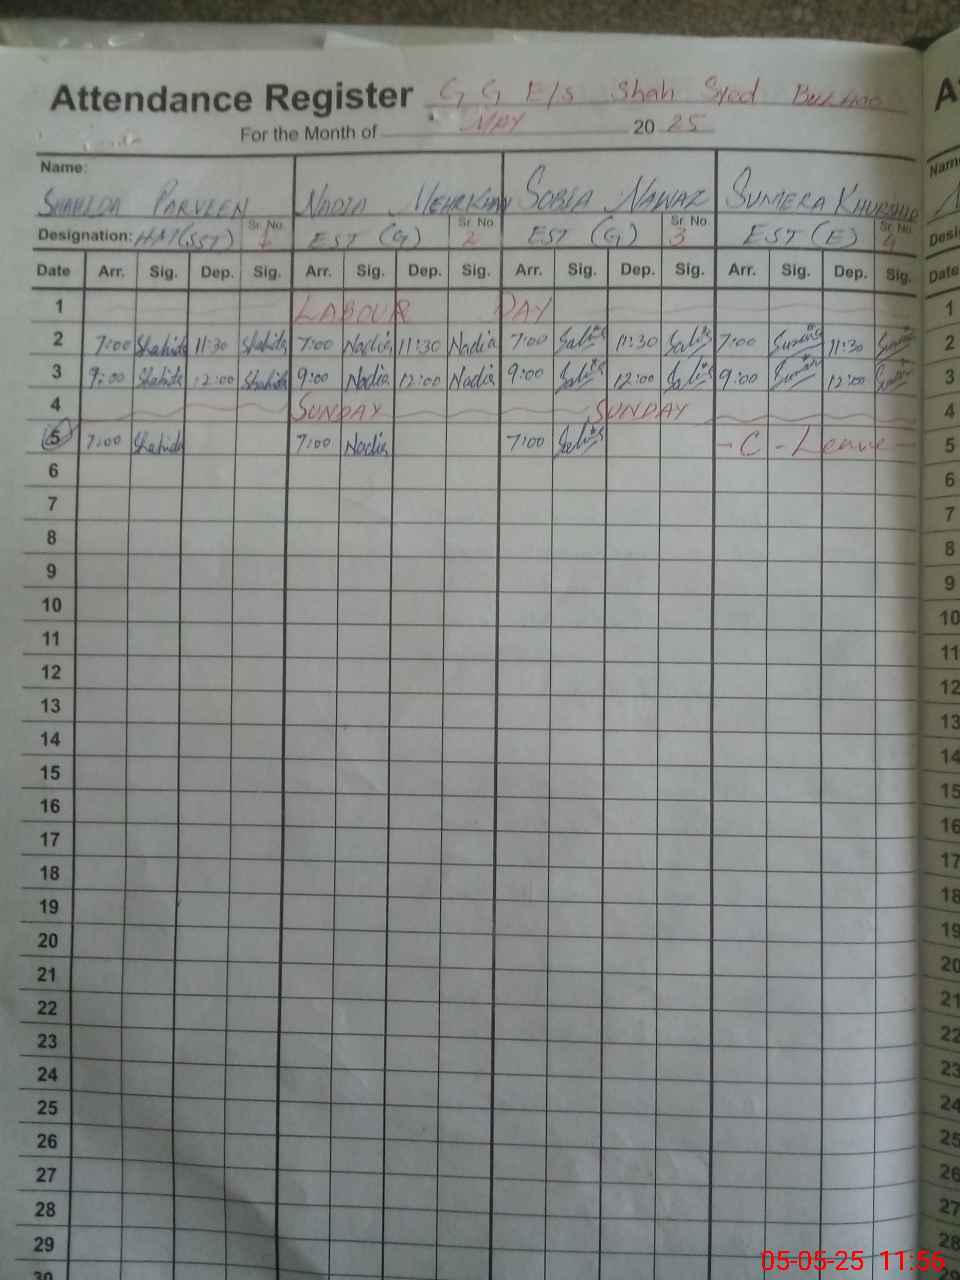 Attendance Register G G E/s Shah Syed
For the Month of MAY 20 25
Name:
SHAHIDA PARVEEN NADIA MEHRKHAN SOBIA NAWAZ SUMERA KHURSHID
Designation: HM(SST) Sr. No. 1 EST (G) Sr. No. 2 EST (G) Sr. No. 3 EST (E) Sr. No. 4
Date Arr. Sig. Dep. Sig. Arr. Sig. Dep. Sig. Arr. Sig. Dep. Sig. Arr. Sig. Dep. Sig. Date
1 LABOUR DAY 1
2 7:00 Shahida 11:30 Shahida 7:00 Nadia 11:30 Nadia 7:00 11:30 7:00 11:30 2
3 9:00 Shahida 12:00 Shahida 9:00 Nadia 12:00 Nadia 9:00 12:00 9:00 12:00 3
4 SUNDAY SUNDAY 4
5 7:00 Shahida 7:00 Nadia 7:00 - C - Leave 5
6 6
7 7
8 8
9 9
10 10
11 11
12 12
13 13
14 14
15 15
16 16
17 17
18 18
19 19
20 20
21 21
22 22
23 23
24 24
25 25
26 26
27 27
28 28
29
30
05-05-25 11:56